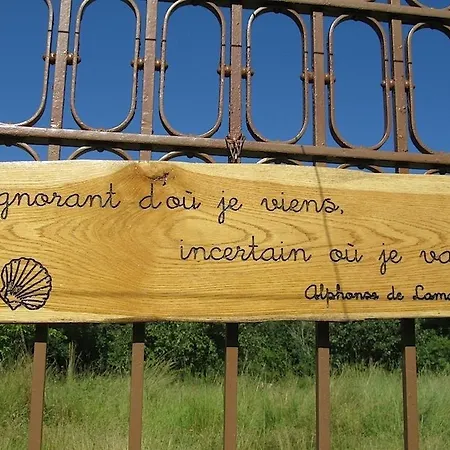 gnorant d'où je viens,
incertain où je va
Alphonse de Lama